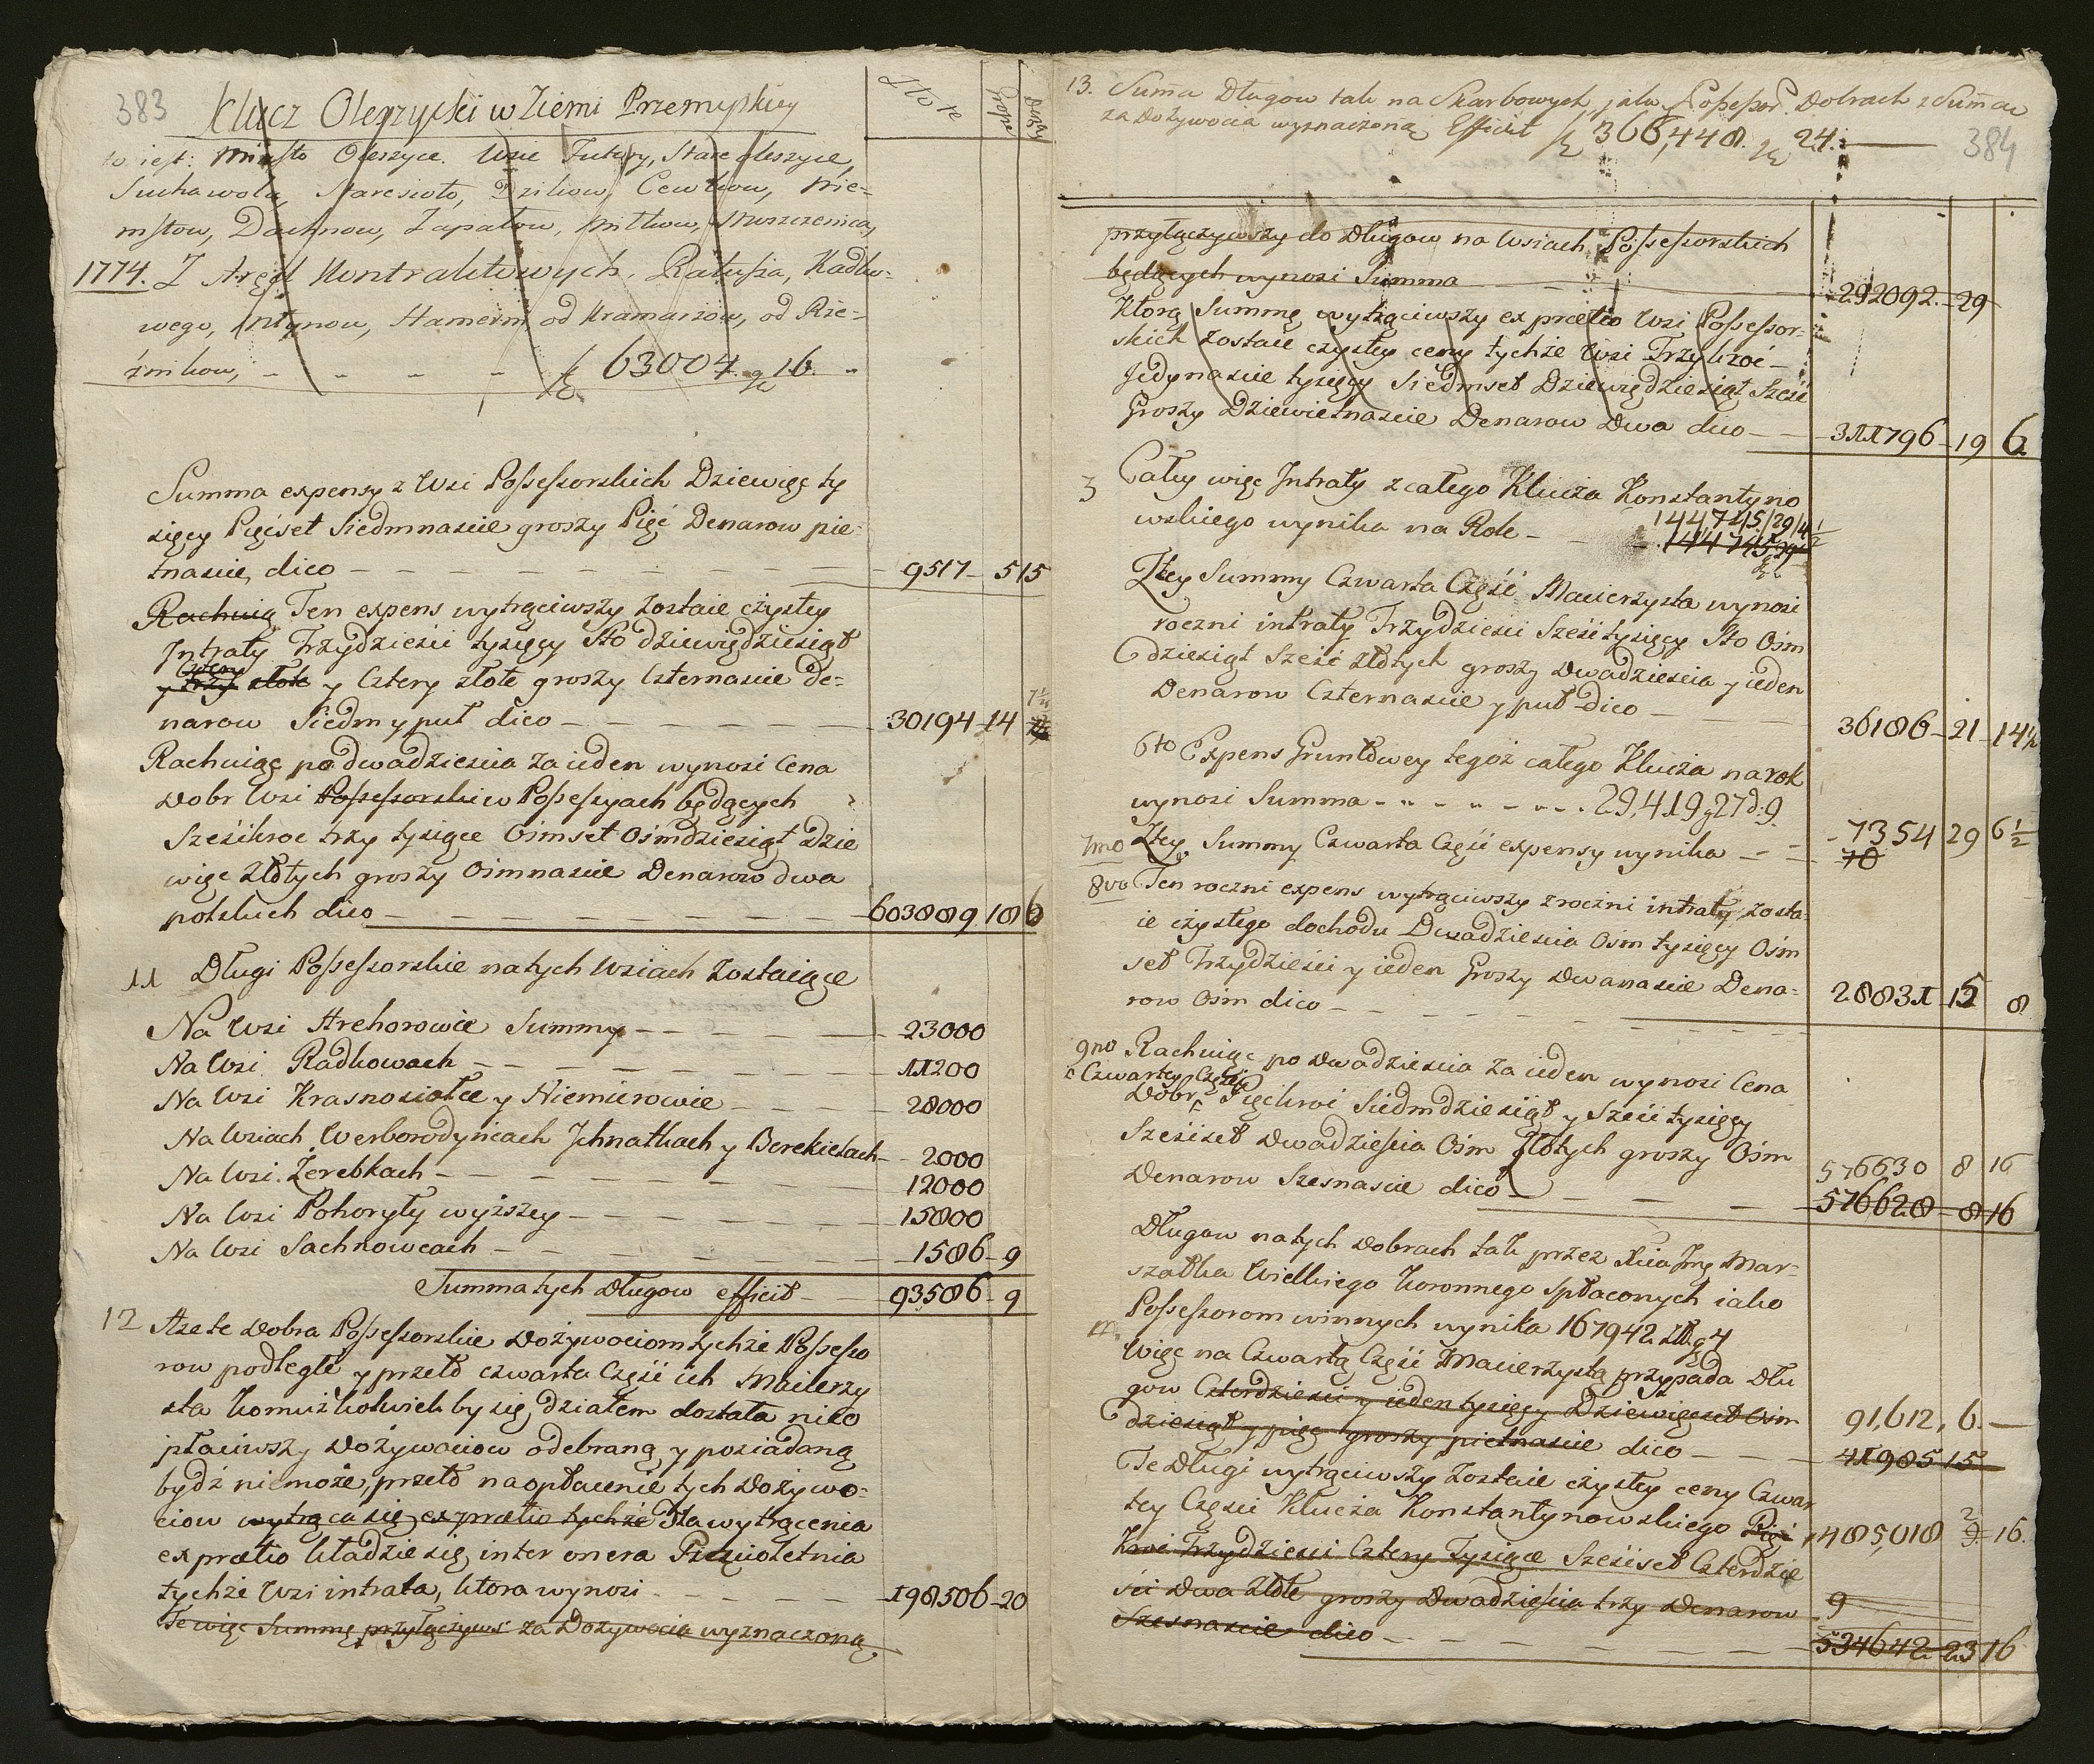 383
Klucz Oleszycki w Ziemi Przemyskiey
Złote
Grosze
Denary
to iest: Miasto Oleszyce. Wsie Futory, Stare oleszyce,
Suchawola, Staresioło, Dzikow, Cewkow, Nie-
mstow, Dachnow, Łapatow, Miłkow, Moszczenica,
1774. Z Aręd Kontraktowych, Ratusza, Kadłu-
wego, Młynow, Hamerni od Kramarżow, od Rze-
źnikow, - - - - - 63004. 16.
Summa expensy z Wsi Possessorskich Dziewięć ty
sięcy Pięćset Siedmnascie groszy Pięć Denarow pie-
tnascie, dico - 9517 - 5 15
Rachuią Ten expens wytrąciwszy zostaie czystey
Intraty Trzydzieści tysięcy Sto dziewiędziesiąt
cztery
y trzy złote y Cztery złote groszy Czternascie de-
narow Siedm y puł dico - 30194 - 14 7½
Rachuiąc po dwadziescia za ieden wynosi Cena
Dobr Wsi Possessorski w Possessyach będących
Sześćkroc trzy tysiące Ośmset Ośmdziesiąt dzie
więć Złotych groszy Ośmnascie Denarow dwa
polskich dico - 603889 18 6
11 Długi Possessorskie na tych Wsiach zostaiące
Na Wsi Arehorowie Summy - 23000
Na Wsi Radkowach - 11200
Na Wsi Krasnosiołce y Niemierowie - 28000
Na Wsiach Werborodyńcach Jchnatkach y Berekietach - 2000
Na Wsi Żerebkach - 12000
Na Wsi Pohoryły wyższey - 15800
Na Wsi Sachnowcach - 1586 - 9
Summa tych Długow efficit - 93586 - 9
12 Aże te Dobra Possessorskie Dożywociom tychże Possesso
row podległe y przeto czwarta Część ich Macierzy
sta komużkolwiek by się działem dostała nieo
płaciwszy Dożywociow odebraną y posiadaną
bydź nie może, przeto na opłacenie tych Dożywo-
ciow wytrąca się ex praetio tychże Dla wytrącenia
ex praetio kładzie się inter onera Pięcioletnia
tychże Wsi intrata, ktora wynosi - 198506 - 20
Te więc Summę przyłączywsz za Dożywocia wyznaczoną
13. Summa Długow tak na Skarbowych, jako y Possessor. Dobrach z Summą
za Dożywocia wyznaczoną Efficit 366,448. 24.
384
przyłączywszy do Długow na Wsiach Possessorskich
będących wynosi Summa - 292092. - 29
Ktorą Summę wytrąciwszy ex praetio Wsi Possessor-
skich zostaie czystey ceny tychże Wsi Trzykroć
Jedynascie tysięcy Siedmset Dziewiędziesiąt Sześć
Groszy Dziewietnascie Denarow Dwa dico - 311796 - 19 6
3 Całey więc Intraty z całego Klucza Konstantyno
wskiego wynika na Rok - 144,745/29/4½
144745 29
Ztey Summy Czwarta Część Macierzysta wynosi
roczni intraty Trzydziesci Sześć tysięcy Sto Ośm
dziesiąt Sześć złotych groszy Dwadziescia y ieden
Denarow Czternascie y puł dico - 36186 - 21 - 14½
6to Expens Gruntowey tegoż całego Klucza na rok
wynosi Summa - 29,419 g 27 d: 9.
7mo Ztey Summy Czwarta Część expensy wynika - 7354 29 6½
78
8vo Ten roczni expens wytrąciwszy z roczni intraty, zosta-
ie czystego dochodu Dwadziescia Ośm tysięcy Ośm
set Trzydzieści y ieden Groszy Dwanascie Dena-
row Ośm dico - 28831 - 15 8
9no Rachuiąc po Dwadziescia za ieden wynosi Cena
Czwartey Części
Dobr, Pięćkroć Siedmdziesiąt y Sześć tysięcy
Sześćset Dwadziescia Ośm Złotych groszy Ośm
576630 8 16
Denarow Szesnascie dico - 576628 - 8 16
Długow na tych Dobrach tak przez Xcia Jmę Mar-
szałka Wielkiego Koronnego spłaconych iako
Possessorom winnych wynika 167942 Zł. g 4
Więc na Czwartą Część Macierzystą przypada Dłu
gow Czterdzieści y ieden tysięcy Dziewięćset Ośm
91,612, 6. —
dziesiąt y pięć groszy pietnascie dico - 41985 15
Te Długi wytrąciwszy zostaie czystey ceny Czwar
tey Części Klucza Konstantynowskiego Pięć 485,018 2 16.
Kroć Trzydzieści Cztery Tysiące Sześćset Czterdzie
ści Dwa Złote groszy Dwadzieścia trzy Denarow 9
Szesnascie dico - 534642 23 16